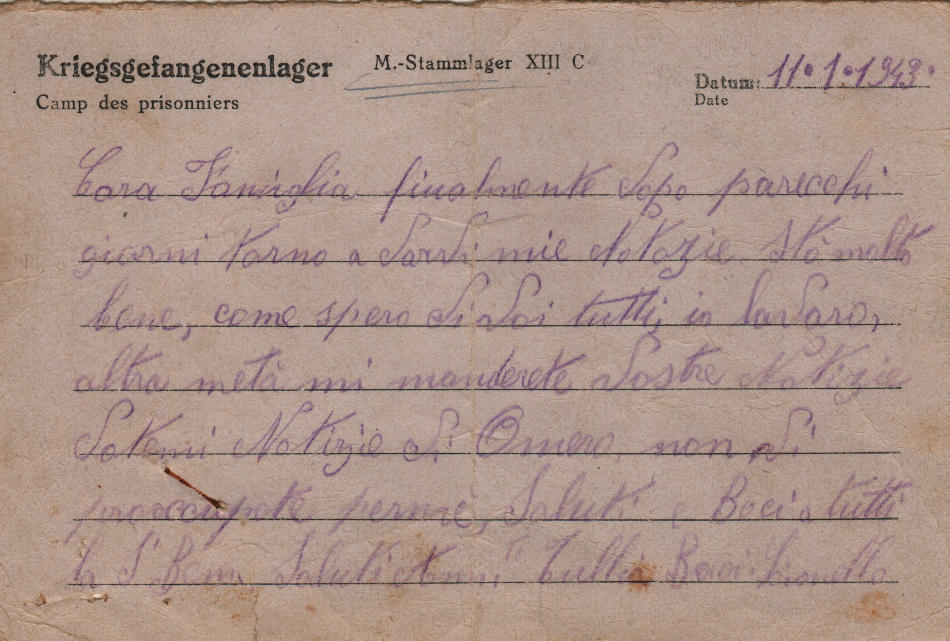 Kriegsgefangenenlager
M.-Stammlager XIII C
Camp des prisonniers
Datum: 11.1.1943.
Date
Cara Famiglia finalmente dopo parecchi
giorni torno a darvi mie Notizie. Stò molto
bene, come spero di voi tutti, io lavoro,
altra metà mi manderete vostre Notizie
Datemi Notizie di Omero, non vi
preoccupate per me, Saluti e Baci a tutti
Saluti Tullia Baci